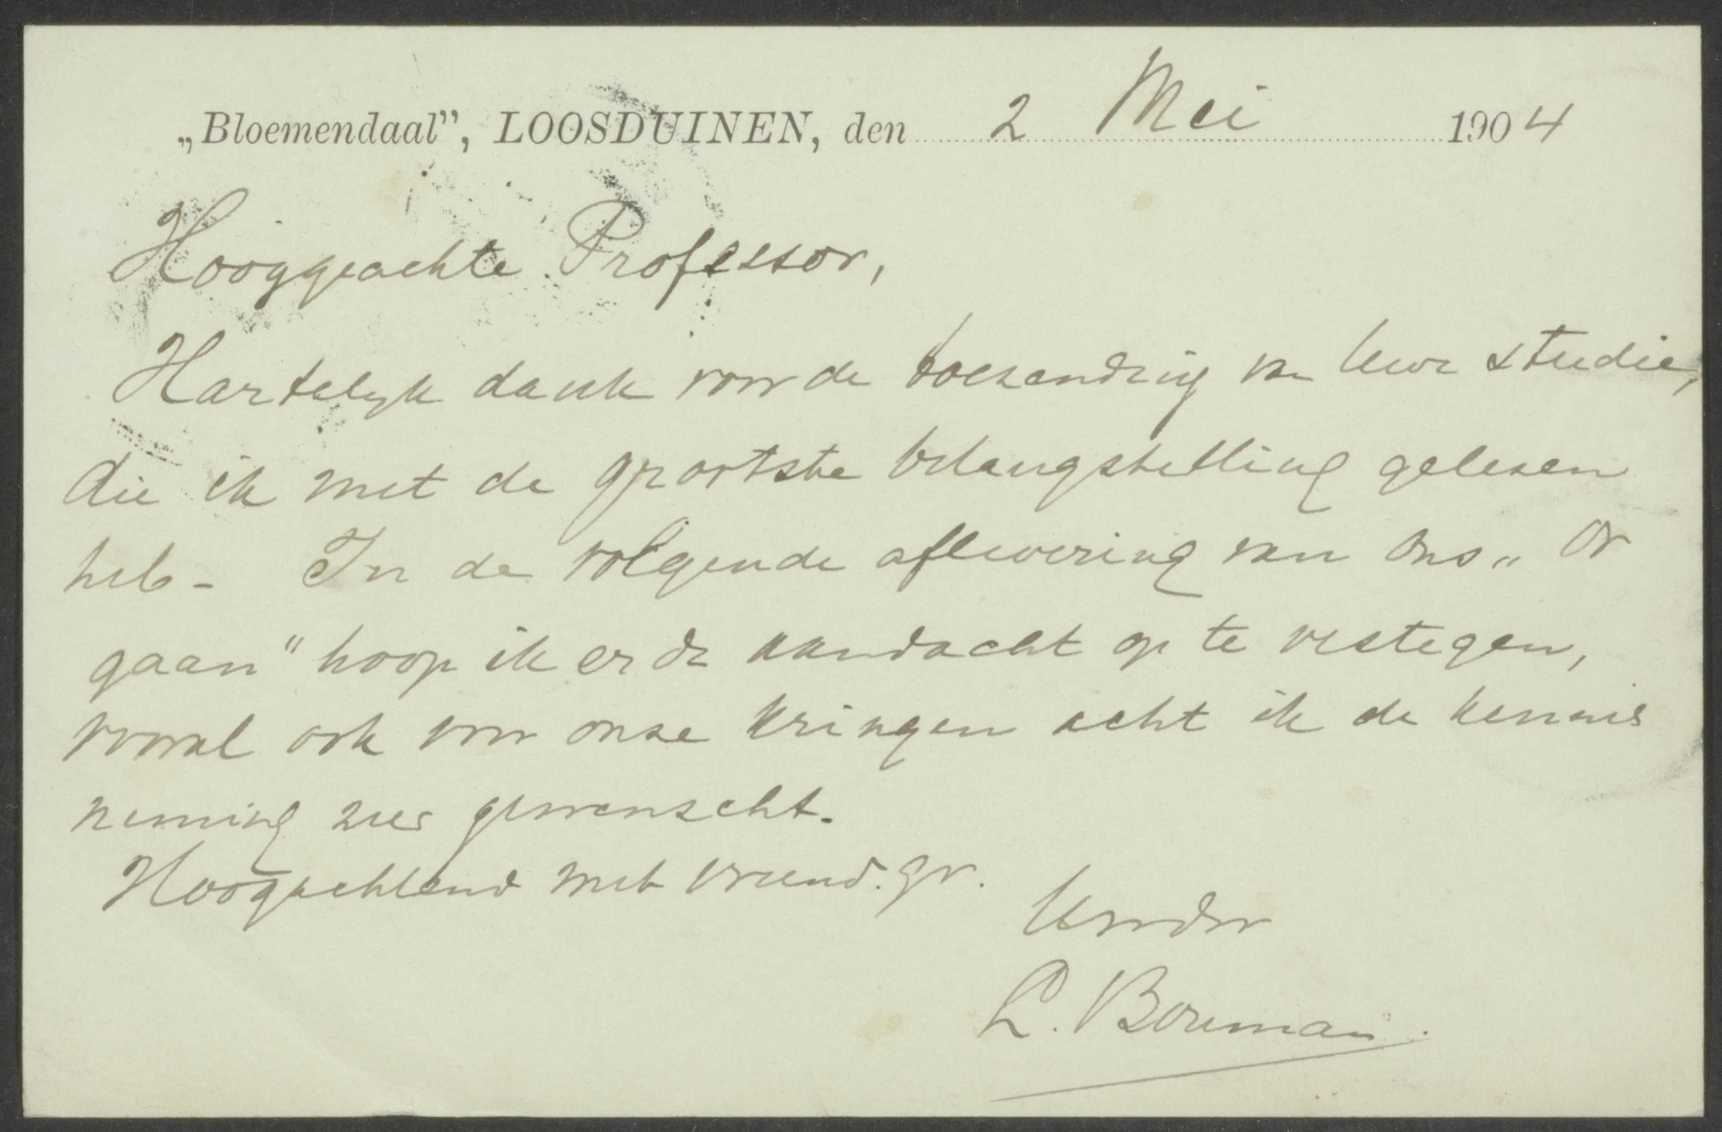 „Bloemendaal”, LOOSDUINEN, den 2 Mei 1904
Hooggeachte Professor,
Hartelijk dank voor de toezending van Uwe studie,
die ik met de grootste belangstelling gelezen
heb - In de volgende aflevering van ons „Or
gaan" hoop ik er de aandacht op te vestigen,
vooral ook voor onze kringen acht ik de kennis
neming zeer gewenscht.
Hoogachtend met vriend. gr.
L. Bouman.